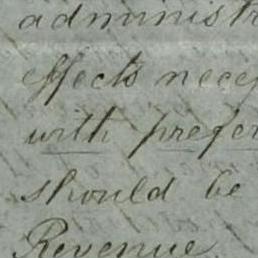 administr
effects nece
with prefer
should be
Revenue